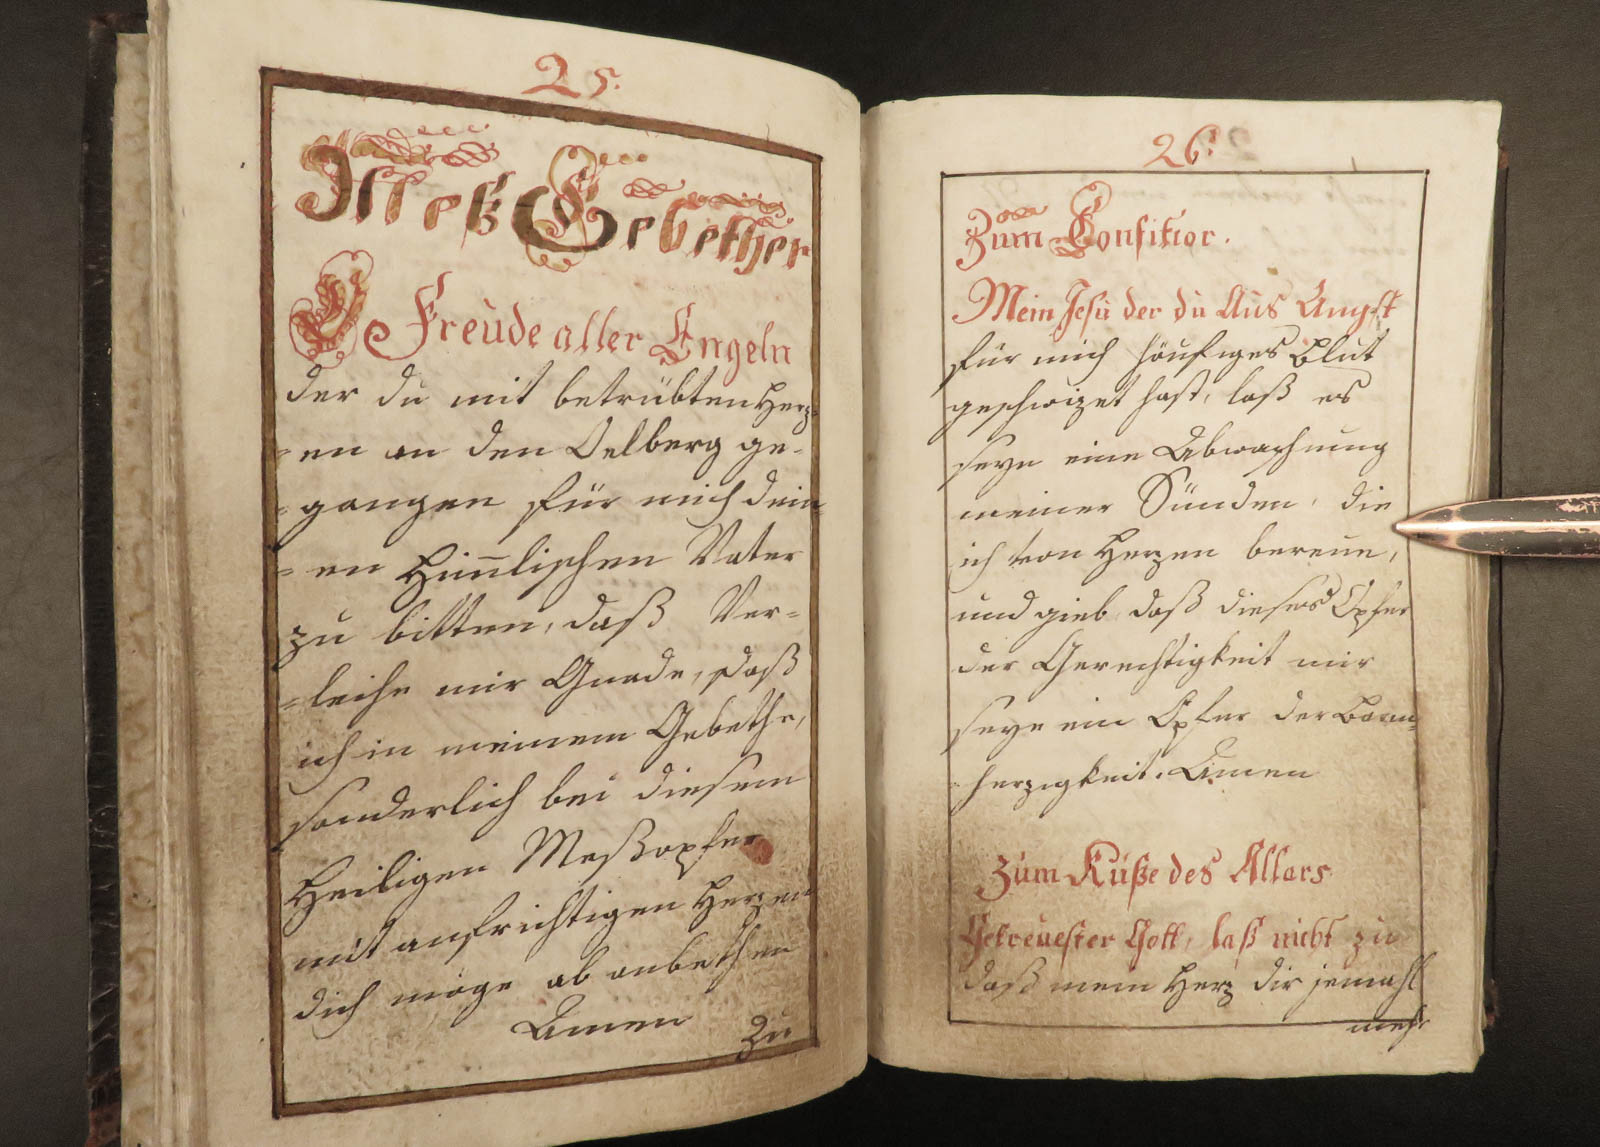 25.
Meß Gebether
O Freude aller Engeln
der du mit betrübten Herz=
=en an den Oelberg ge=
=gangen für mich dein=
=en Him̄lischen Vater
zu bitten, daß Ver=
=leihe mir Gnade, daß
ich in meinem Gebethe,
sonderlich bei diesem
Heiligen Meßopfer
mit aufrichtigen Herzen
dich möge anbethen
Amen
Zu
26.
Zum Confitior.
Mein Jesu der du Aus Angst
für mich häufiges Blut
geschwizet hast, laß es
seye eine Abwaschung
meiner Sünden, die
ich von Herzen bereue,
und gieb, daß dieses Opfer
der Gerechtigkeit mir
seye ein Opfer der Barm=
herzigkeit. Amen
Zum Kuße des Altars
Getreuester Gott, laß nicht zu
daß mein Herz dir jemahl
mehr